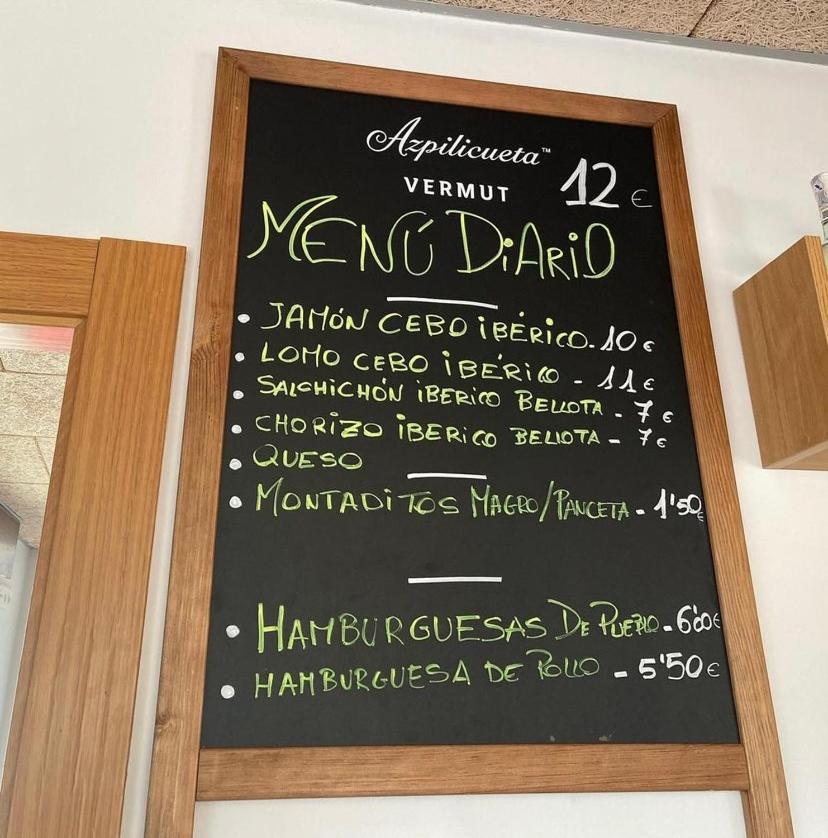 Azpilicueta™
VERMUT
12 €
MENÚ DIARIO
• JAMÓN CEBO IBÉRICO. 10 €
• LOMO CEBO IBÉRICO - 11 €
• SALCHICHÓN IBERICO BELLOTA - 7 €
• CHORIZO IBERICO BELLOTA - 7 €
• QUESO
• MONTADITOS MAGRO/PANCETA - 1'50 €
• HAMBURGUESAS DE PUEBLO - 6'00 €
• HAMBURGUESA DE POLLO - 5'50 €